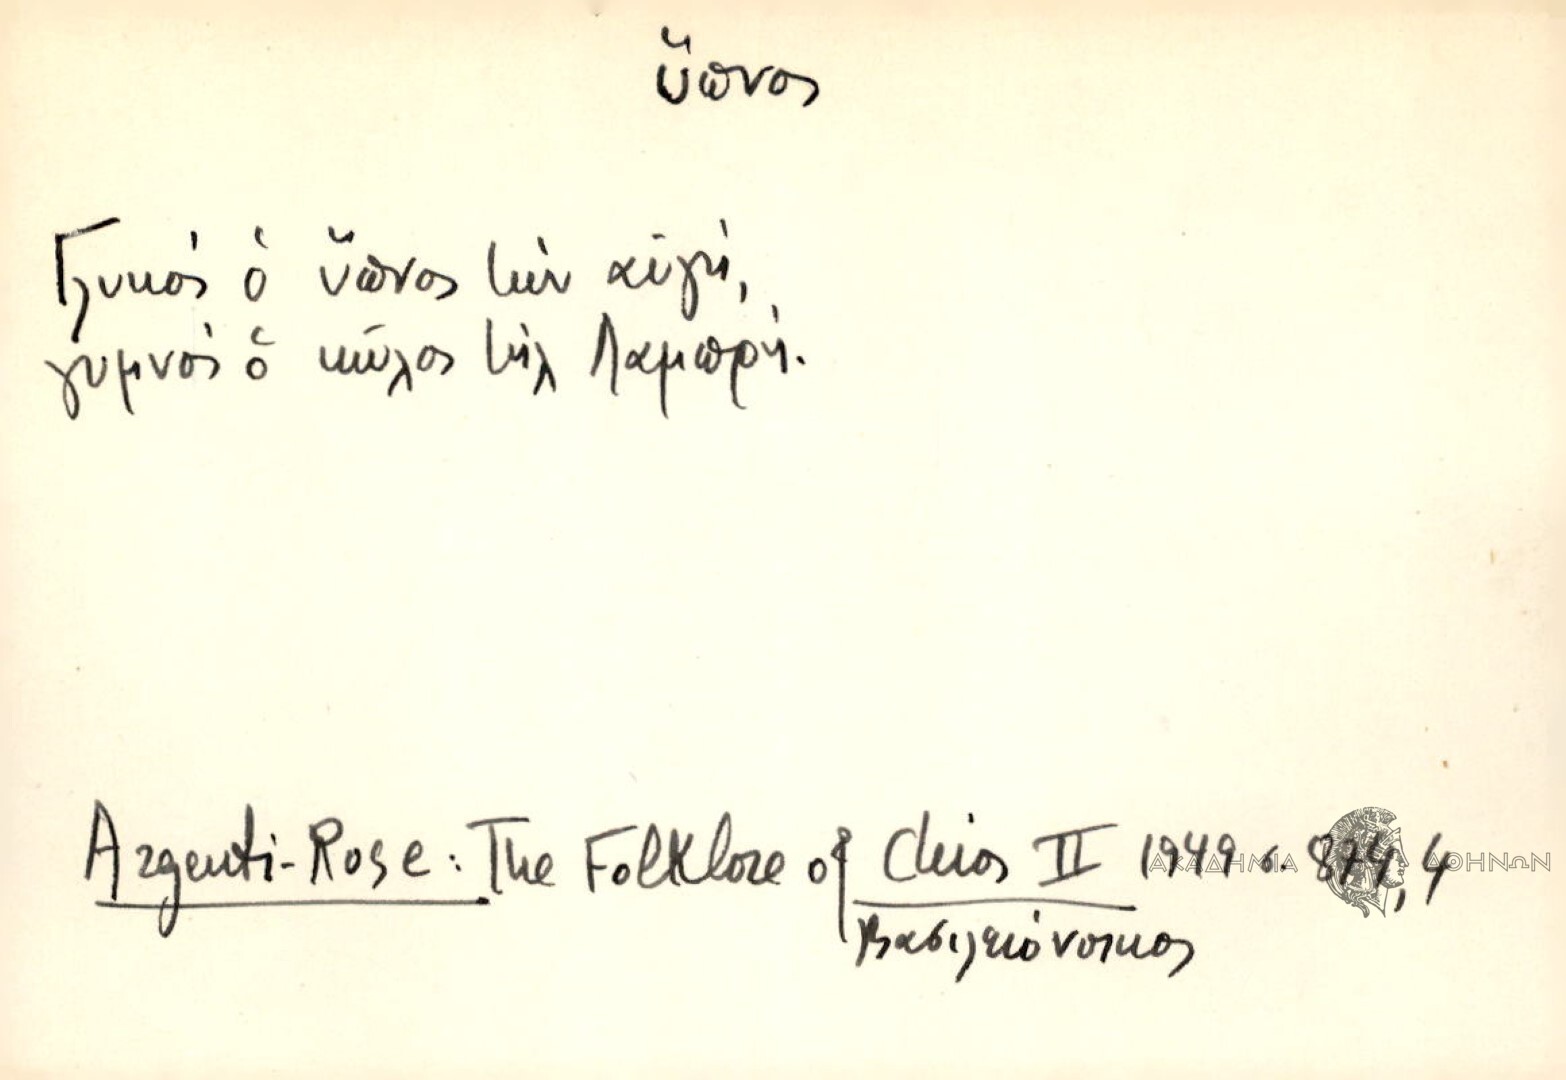 ὕπνος
Γλυκὸς ὁ ὕπνος τὴν αὐγή,
γυμνὸς ὁ κῶλος τὴλ Λαμπρή.
Argenti-Rose: The Folklore of Chios II 1949 σ. 874, 4
Βασιλειόνοικος
ΑΚΑΔΗΜΙΑ ΑΘΗΝΩΝ